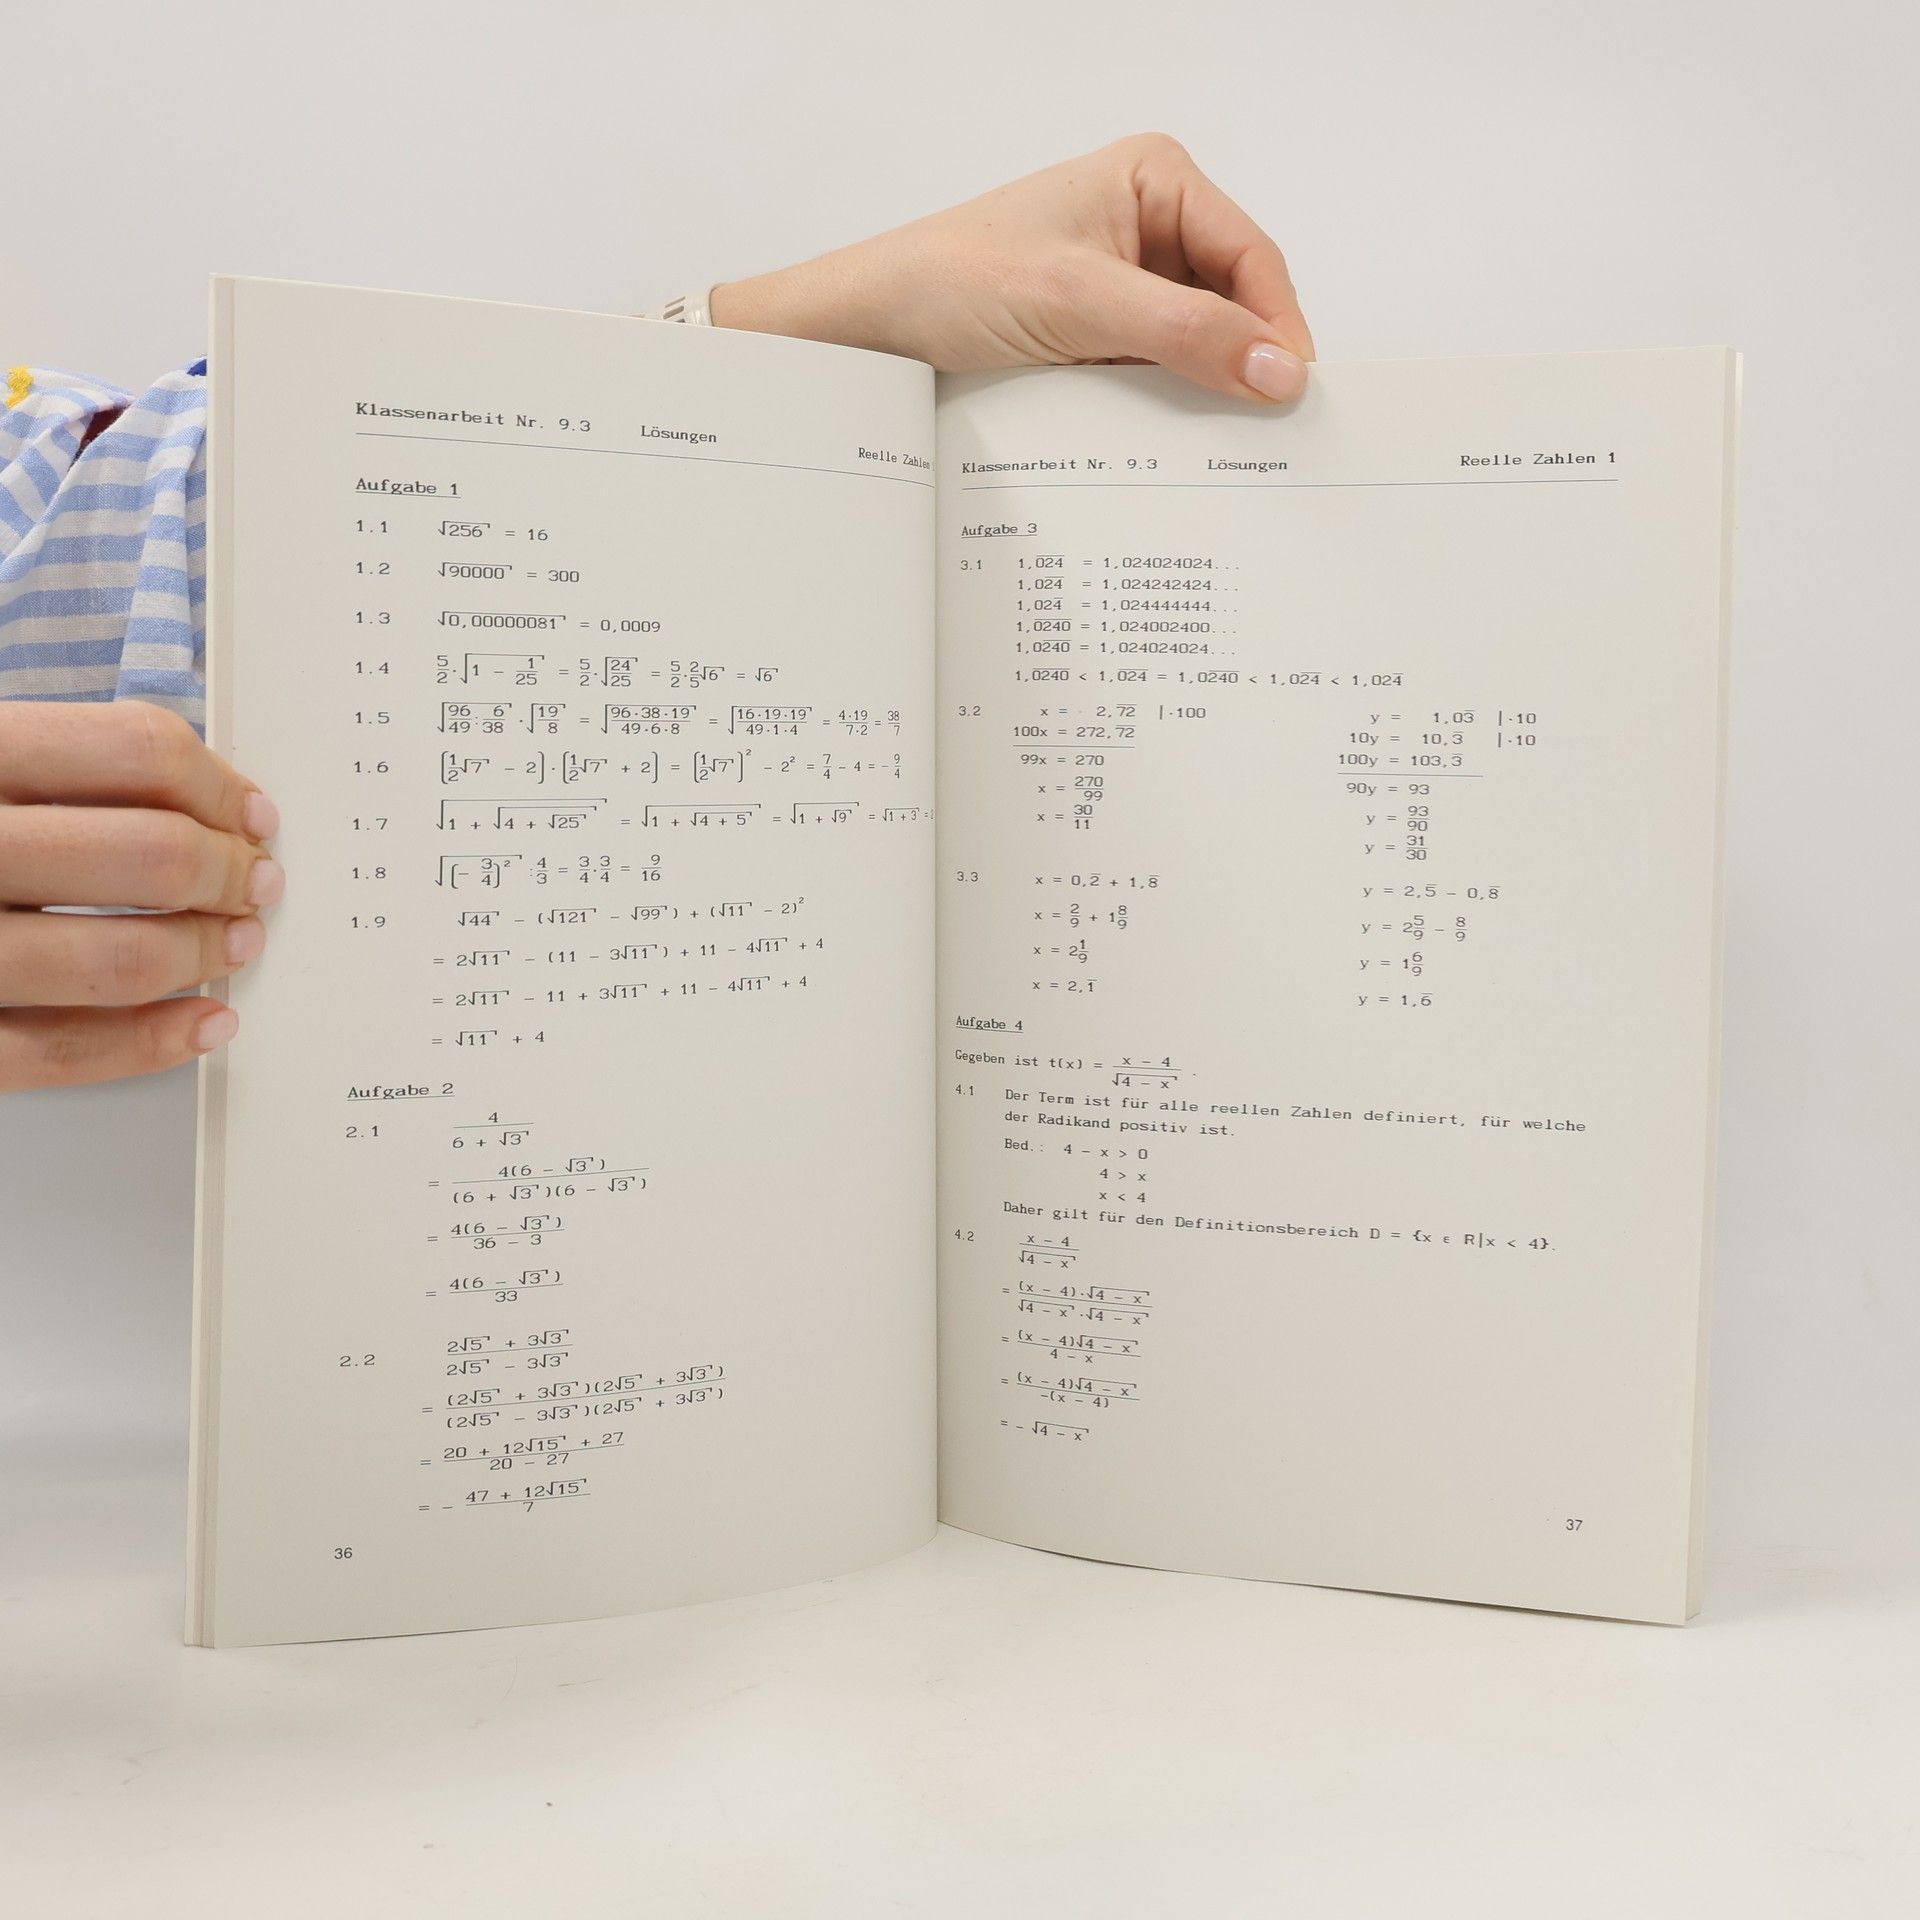 Klassenarbeit Nr. 9.3 Lösungen
Reelle Zahlen
Aufgabe 1
1.1 √256 = 16
1.2 √90000 = 300
1.3 √0,00000081 = 0,0009
1.4 5/2·√(1 - 1/25) = 5/2·√(24/25) = 5/2·2/5√6 = √6
1.5 √(96/49:6/38)·√(19/8) = √((96·38·19)/(49·6·8)) = √((16·19·19)/(49·1·4)) = (4·19)/(7·2) = 38/7
1.6 (1/2√7 - 2)·(1/2√7 + 2) = (1/2√7)² - 2² = 7/4 - 4 = -9/4
1.7 √(1 + √(4 + √25)) = √(1 + √(4 + 5)) = √(1 + √9) = √(1 + 3) =
1.8 √((-3/4)²):4/3 = 3/4·3/4 = 9/16
1.9 √44 - (√121 - √99) + (√11 - 2)²
= 2√11 - (11 - 3√11) + 11 - 4√11 + 4
= 2√11 - 11 + 3√11 + 11 - 4√11 + 4
= √11 + 4
Aufgabe 2
2.1 4/(6 + √3)
= 4(6 - √3)/((6 + √3)(6 - √3))
= 4(6 - √3)/(36 - 3)
= 4(6 - √3)/33
2.2 (2√5 + 3√3)/(2√5 - 3√3)
= (2√5 + 3√3)(2√5 + 3√3)/((2√5 - 3√3)(2√5 + 3√3))
= (20 + 12√15 + 27)/(20 - 27)
= - (47 + 12√15)/7
36
Klassenarbeit Nr. 9.3 Lösungen Reelle Zahlen 1
Aufgabe 3
3.1 1,0̅2̅4̅ = 1,024024024...
1,02̅4̅ = 1,024242424...
1,024̅ = 1,024444444...
1,0̅2̅4̅0̅ = 1,024002400...
1,02̅4̅0̅ = 1,024024024...
1,0̅2̅4̅0̅ < 1,0̅2̅4̅ = 1,02̅4̅0̅ < 1,02̅4̅ < 1,024̅
3.2 x = 2,7̅2̅ |·100 y = 1,03̅ |·10
100x = 272,7̅2̅ 10y = 10,3̅ |·10
100y = 103,3̅
99x = 270 90y = 93
x = 270/99 y = 93/90
x = 30/11 y = 31/30
3.3 x = 0,2̅ + 1,8̅ y = 2,5̅ - 0,8̅
x = 2/9 + 1 8/9 y = 2 5/9 - 8/9
x = 2 1/9 y = 1 6/9
x = 2,1̅ y = 1,6̅
Aufgabe 4
Gegeben ist t(x) = (x - 4)/√(4 - x).
4.1 Der Term ist für alle reellen Zahlen definiert, für welche
der Radikand positiv ist.
Bed.: 4 - x > 0
4 > x
x < 4
Daher gilt für den Definitionsbereich D = {x ε R|x < 4}.
4.2 (x - 4)/√(4 - x)
= (x - 4)·√(4 - x)/(√(4 - x)·√(4 - x))
= (x - 4)√(4 - x)/(4 - x)
= (x - 4)√(4 - x)/(-(x - 4))
= - √(4 - x)
37